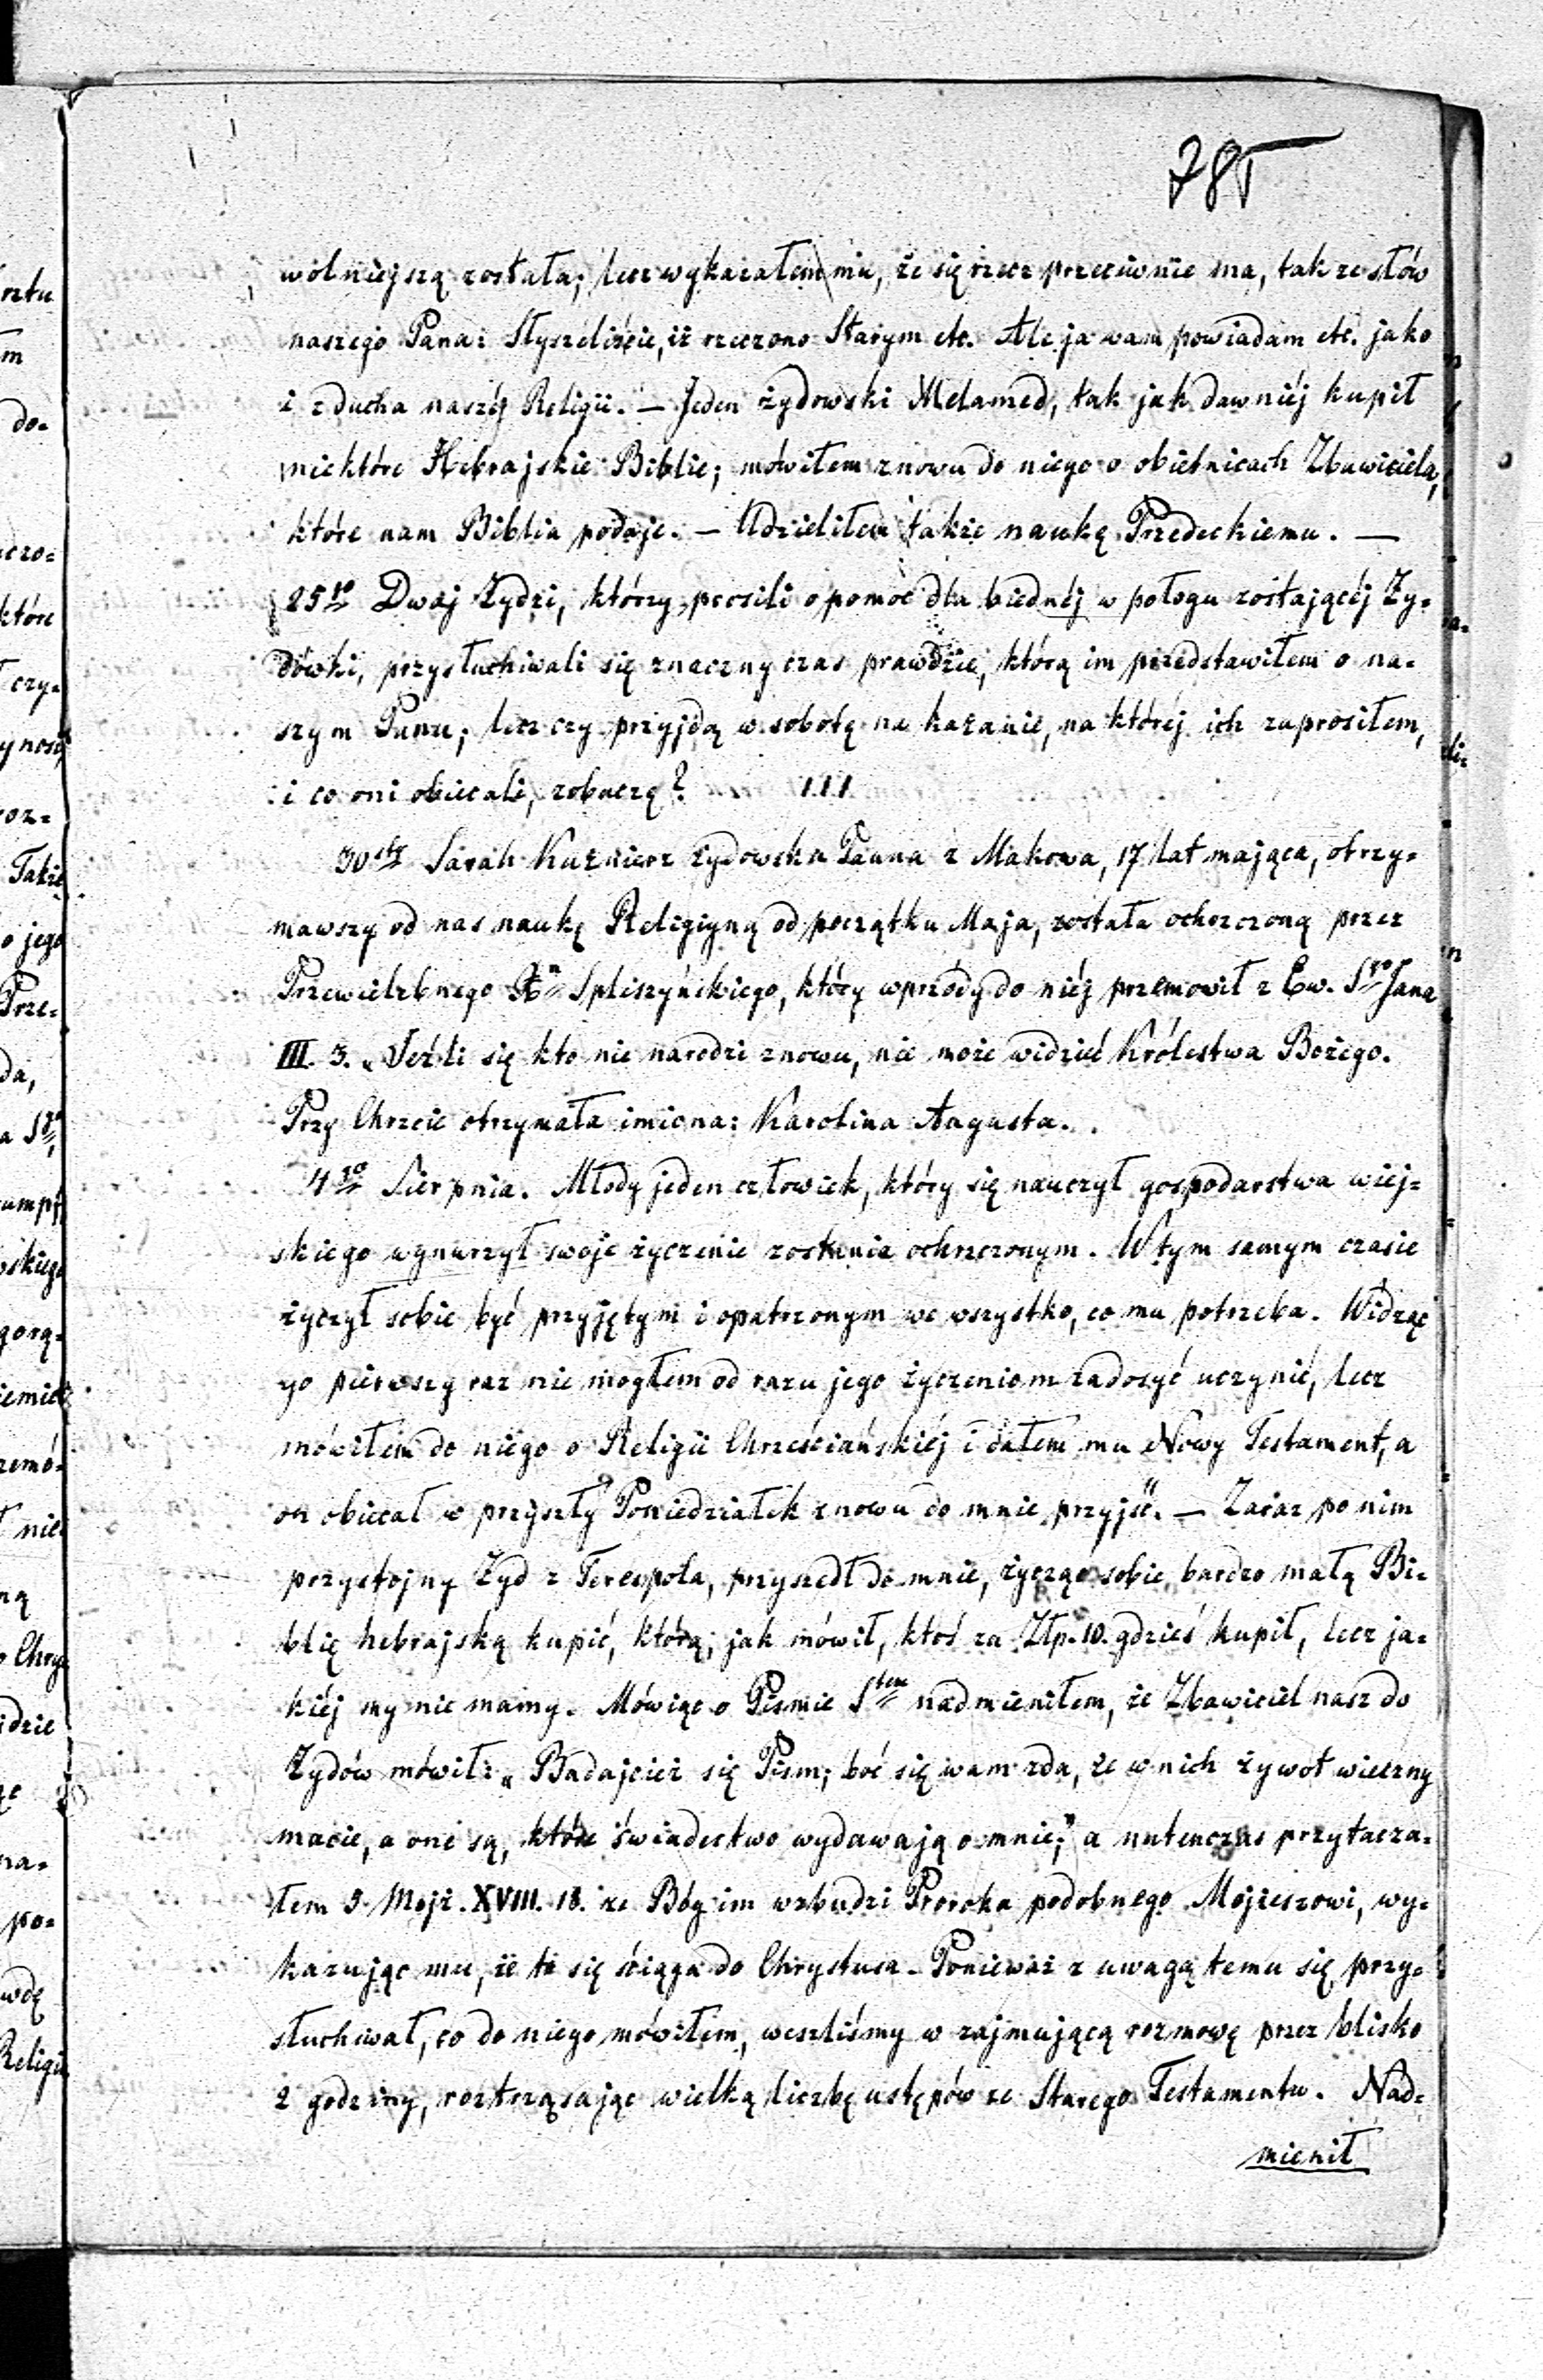 785
wolniejszą została; lecz wykazałem mu, że się rzecz przeciwnie ma, tak ze słów
naszego Pana: Słyszeliście, iż rzeczono Starym etc. Ale ja wam powiadam etc. jako
i z ducha naszéj Religii. — Jeden żydowski Melamed, tak jak dawniéj kupił
niektóre Hebrajskie Biblie; mówiłem znowu do niego o obietnicach Zbawiciela,
które nam Biblia podaje. — Udzieliłem także naukę Przedeckiemu. —
25go Dwaj Żydzi, którzy prosili o pomoc dla biednéj w połogu zostającéj Ży=
dówki, przysłuchiwali się znaczny czas prawdzie, którą im przedstawiłem o na=
szym Panu; lecz czy przyjdą w sobotę na kazanie, na któréj ich zaprosiłem,
i co oni obiecali, zobaczę?
30sty Sarah Kuznierz żydowska Panna z Makowa, 17 lat mająca, otrzy=
mawszy od nas naukę Religigną od początku Maja, została ochrzczoną przez
Przewielebnego Xa Spliszyńskiego, który wprzódy do niéj przemowił z Ew. Sgo Jana
III. 3. „Jeźli się kto nie narodzi znowu, nie może widzieć Królestwa Bożego.
Przy Chrzcie otrzymała imiona: Karolina Augusta.
4go Sierpnia. Młody jeden człowiek, który się nauczył gospodarstwa wiej=
skiego wynurzył swoje życzenie zostania ochrzczonym. W tym samym czasie
życzył sobie być przyjętym i opatrzonym we wszystko, co mu potrzeba. Widząc
go pierwszy raz nie mogłem od razu jego życzeniom zadosyć uczynić, lecz
mówiłem do niego o Religii Chrześciańskiéj i dałem mu Nowy Testament, a
on obiecał w przyszły Poniedziałek znowu do mnie przyjść. — Zaraz po nim
przystojny Żyd z Terespola, przyszedł do mnie, życząc sobie bardzo małą Bi=
blię hebrajską kupić, którą, jak mówił, ktoś za Złp. 10. gdzieś kupił, lecz ja=
kiéj my nie mamy. Mówiąc o Piśmie Stem nadmieniłem, że Zbawiciel nasz do
Żydów mówił: „Badajcież się Pism; boć się wam zda, że w nich żywot wieczny
macie, a one są, które świadectwo wydawają o mnie;" a natenczas przytacza=
łem 5. Mojż. XVIII. 18. że Bóg im wzbudzi Proroka podobnego Mojżeszowi, wy=
kazując mu, że to się ściąga do Chrystusa. Ponieważ z uwagą temu się przy=
słuchiwał, co do niego mówiłem, weszliśmy w zajmującą rozmowę przez blisko
2 godziny, roztrząsając wielką liczbę ustępów ze Starego Testamentu. Nad=
mienił